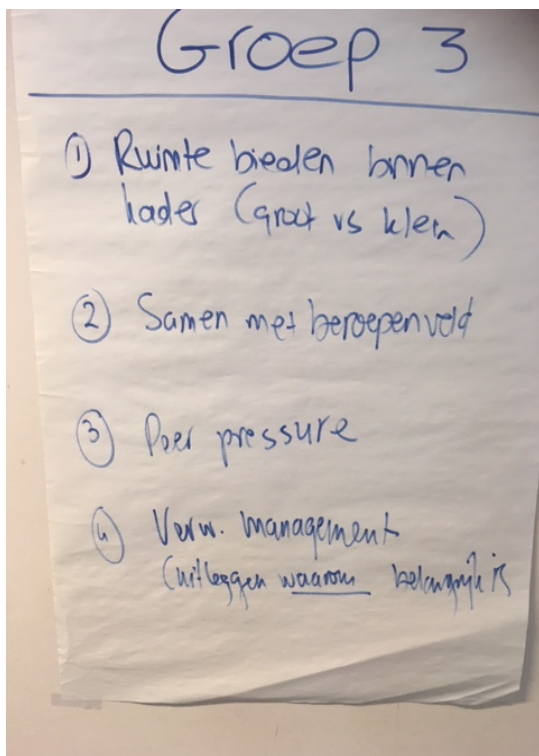 Groep 3
① Ruimte bieden binnen
kader (groot vs klein)
② Samen met beroepenveld
③ Peer pressure
④ Verw. management
(uitleggen waarom belangrijk is